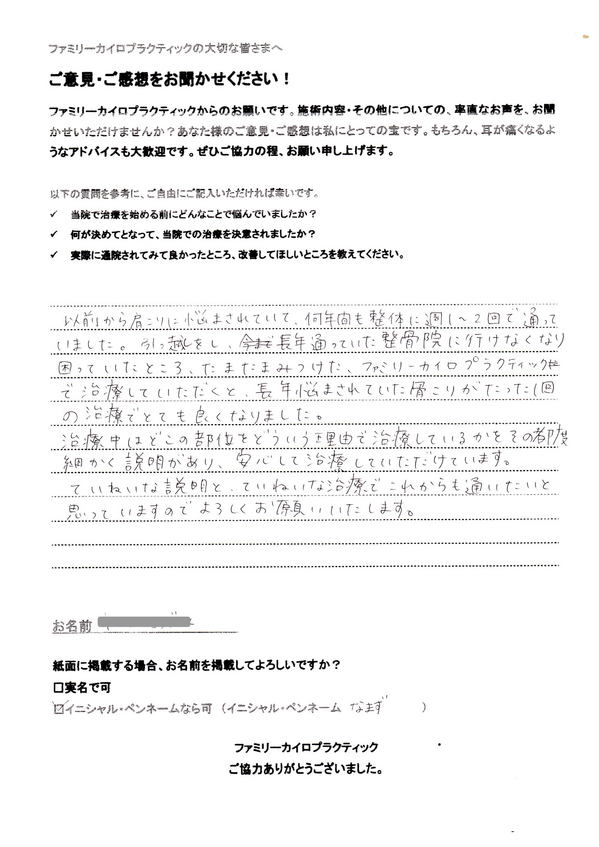 ファミリーカイロプラクティックの大切な皆さまへ
ご意見・ご感想をお聞かせください！
ファミリーカイロプラクティックからのお願いです。施術内容・その他についての、率直なお声を、お聞
かせいただけませんか？あなた様のご意見・ご感想は私にとっての宝です。もちろん、耳が痛くなるよ
うなアドバイスも大歓迎です。ぜひご協力の程、お願い申し上げます。
以下の質問を参考に、ご自由にご記入いただければ幸いです。
✓ 当院で治療を始める前にどんなことで悩んでいましたか？
✓ 何が決めてとなって、当院での治療を決意されましたか？
✓ 実際に通院されてみて良かったところ、改善してほしいところを教えてください。
以前から肩こりに悩まされていて、何年間も整体に週1〜2回で通って
いました。引っ越しをし、長年通っていた整骨院に行けなくなり
困っていたところ、たまたまみつけた、ファミリーカイロプラクティック
で治療していただくと、長年悩まされていた肩こりがたった1回
の治療でとても良くなりました。
治療中はどこの部位をどういう理由で治療しているかをその都度
細かく説明があり、安心して治療していただけています。
ていねいな説明と、ていねいな治療でこれからも通いたいと
思っていますのでよろしくお願いいたします。
お名前
紙面に掲載する場合、お名前を掲載してよろしいですか？
□実名で可
☑イニシャル・ペンネームなら可（イニシャル・ペンネーム なまず ）
ファミリーカイロプラクティック
ご協力ありがとうございました。